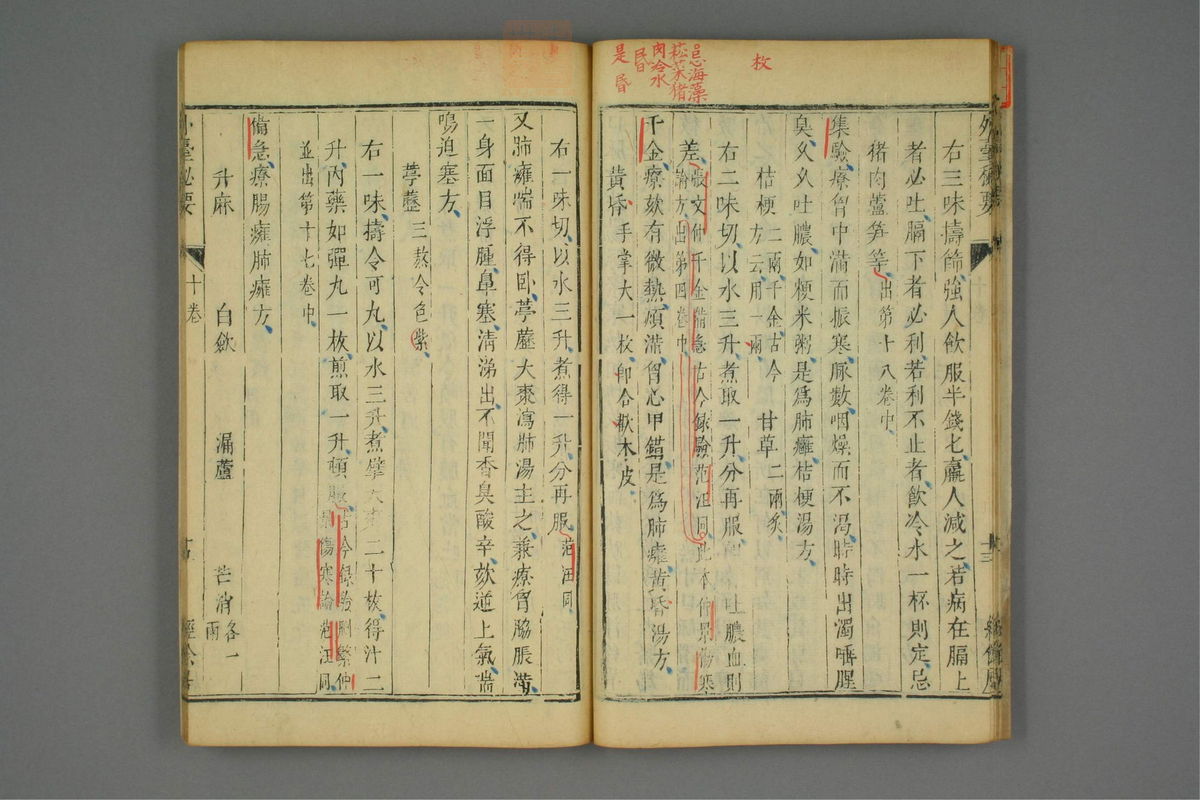 枚
忌海藻
菘菜猪
肉冷水
昏
是昏
外臺秘要
右三味擣篩強人飲服半錢匕羸人減之若病在膈上
者必吐膈下者必利若利不止者飲冷水一杯則定忌
猪肉蘆笋等出第十八卷中
集驗療胷中滿而振寒脈數咽燥而不渴時時出濁唾腥
臭久久吐膿如粳米粥是爲肺癰桔梗湯方
桔梗二兩千金古今方云用一兩 甘草二兩炙
右二味切以水三升煮取一升分再服 吐膿血則
差張文仲千金備急古今録驗范汪同此本仲景傷寒論方出第四卷中
千金療欬有微熱煩滿胷心甲錯是爲肺癰黄昏湯方
黄昏手掌大一枚即合歡木皮
右一味切以水三升煮得一升分再服范汪同
又肺癰喘不得臥葶藶大棗瀉肺湯主之兼療胷脇脹滿
一身面目浮腫鼻塞清涕出不聞香臭酸辛欬逆上氣喘
鳴迫塞方
葶藶三熬令色紫
右一味擣令可丸以水三升煮擘大棗二十枚得汁二
升内藥如彈丸一枚煎取一升頓服古今録驗刪繁仲景傷寒論范汪同
並出第十七卷中
備急療腸癰肺癰方
升麻 白歛 漏蘆 芒消各一兩
外臺秘要 十卷